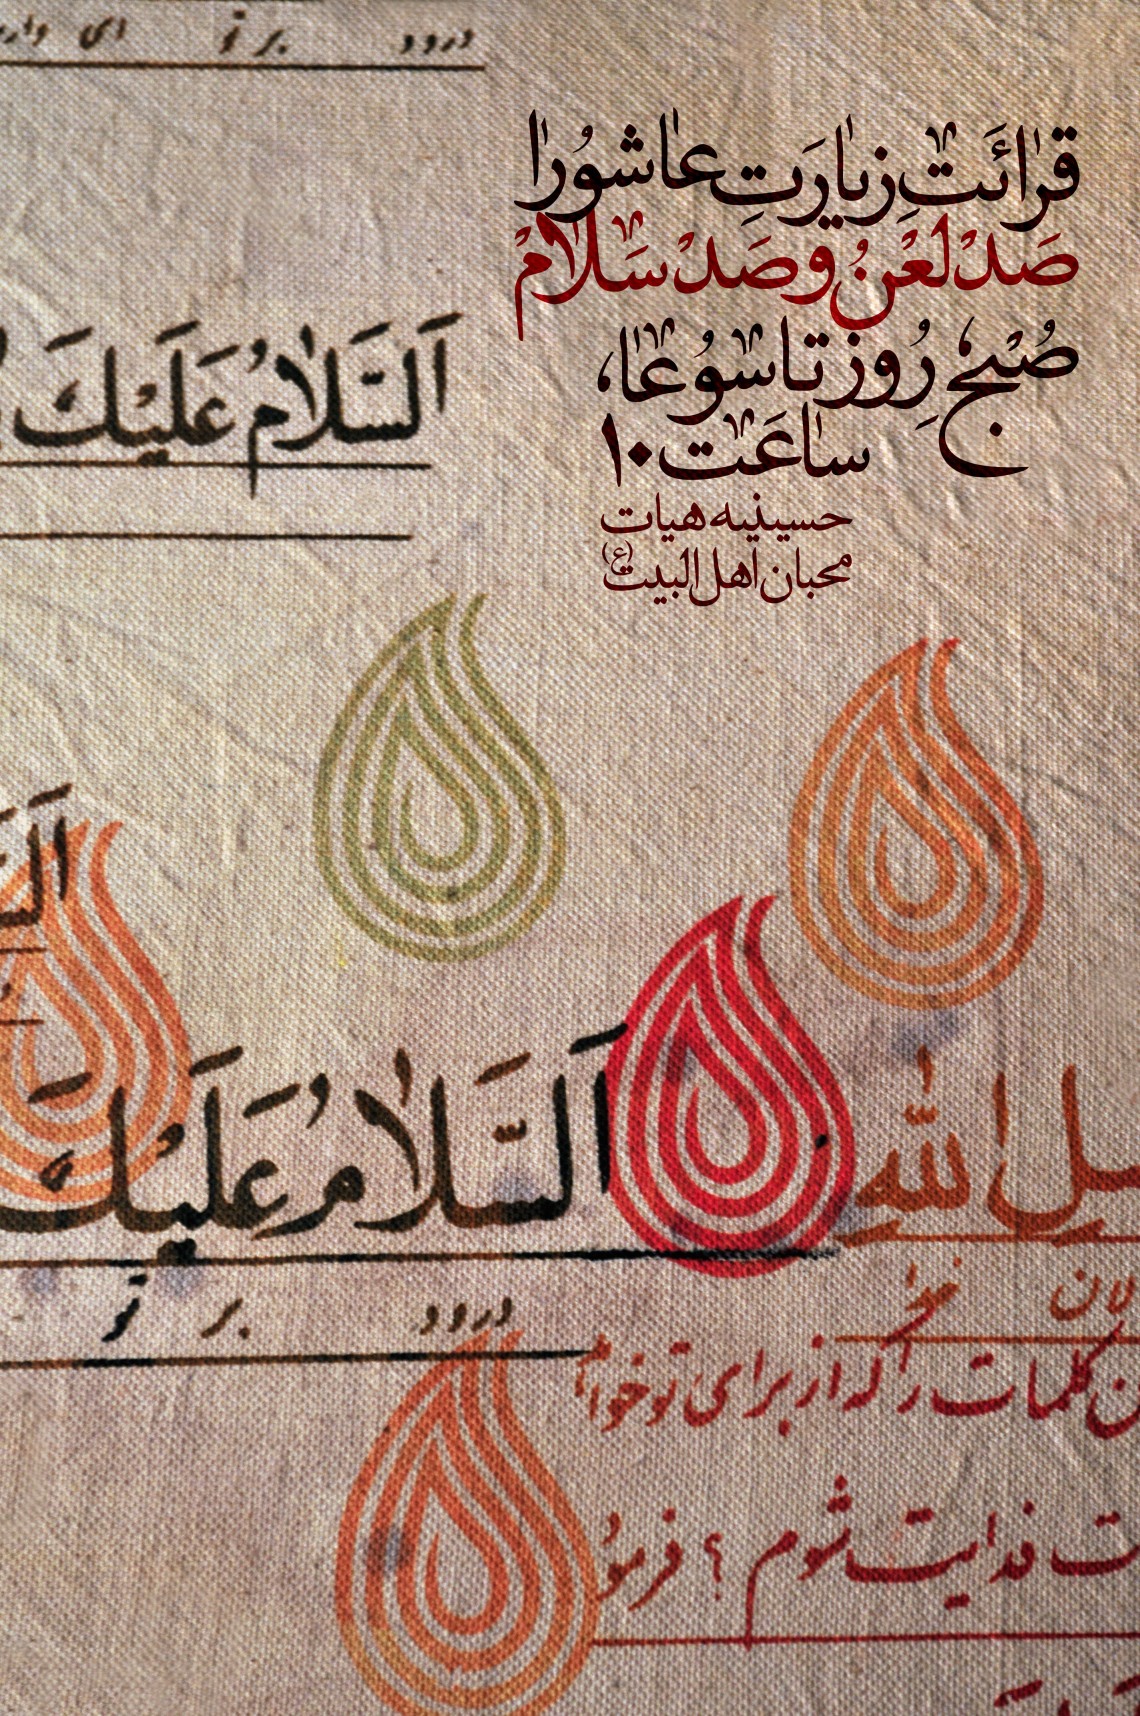 درود بر تو ای
قرائت زیارت عاشورا
صد لعن و صد سلام
صبح روز تاسوعا،
ساعت ۱۰
حسینیه هیات
محبان اهل البیت (ع)
اَلسَّلامُ عَلَیْكَ
اللهِ اَلسَّلامُ عَلَیْكَ
خدا
درود بر تو
کلمات را که از برای تو
فدایت شوم ؟